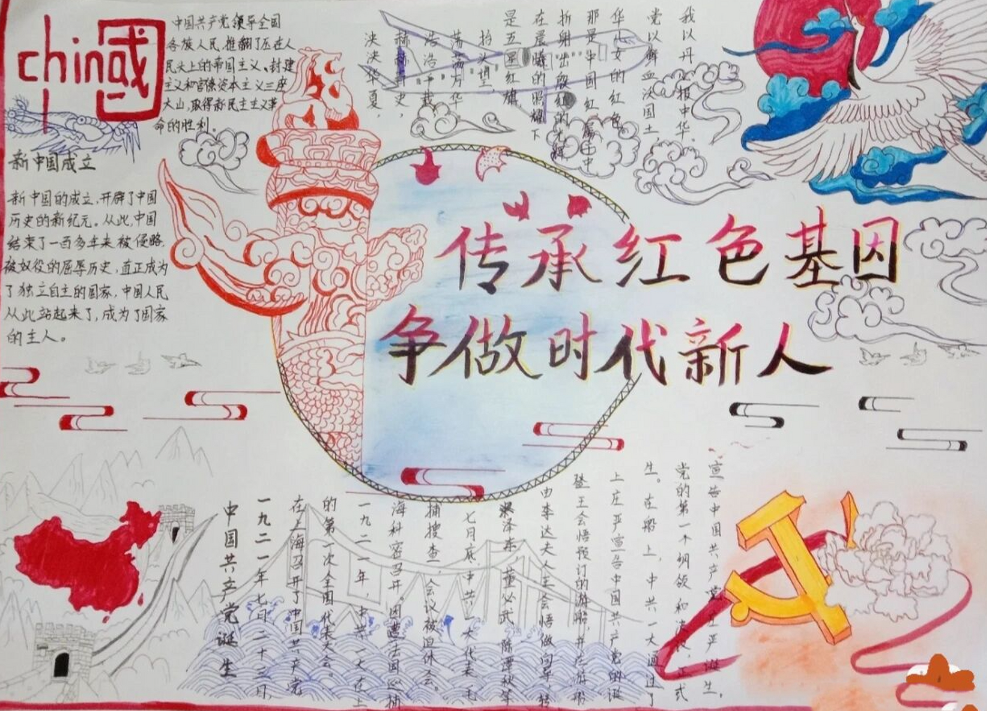 chin國
中国共产党领导全国
各族人民,推翻了压在人
民头上的帝国主义、封建
主义和官僚资本主义三座
大山,取得新民主主义革
命的胜利。
新中国成立
新中国的成立,开辟了中国
历史的新纪元。从此,中国
结束了一百多年来被侵略、
被奴役的屈辱历史,真正成为
了独立自主的国家,中国人民
从此站起来了,成为了国家
的主人。
我以丹 相中华,
党以鲜血决国土
华 文的红色
那是中国红,
折射出
在晨曦的照耀下
是五星红旗,
抬头望,
荡荡 万华
浩浩中
赫赫 史,
泱泱华夏,
传承红色基因
争做时代新人
中国共产党诞生
一九二一年七月二十三日,
在上海召开了中国共产党
的第一次全国代表大会
一九二一年,中共一大在上
海秘密召开,因遭法国巡捕
捕搜查,会议被迫休会。
七月底,中共一大代表毛
泽东、董必武、陈潭秋等
由李达夫人王会悟做向导,转
登王会悟预订的游船,并在游船
上庄严宣告中国共产党的诞
生。在船上,中共一大通过了
党的第一个纲领和 决议,正式
宣告中国共产党庄严诞生,